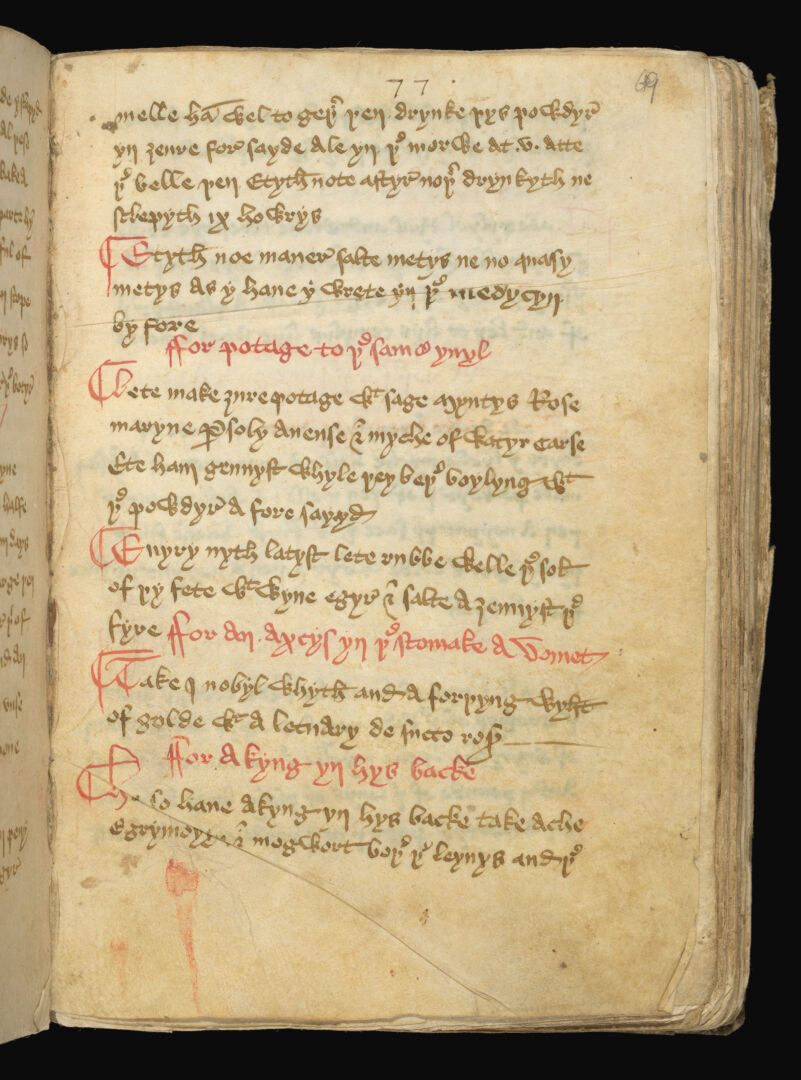 77
69
melle hā wel to geyr þen drynke þys powdyr
yn ȝeure for sayde Ale yn þe morwe At v. Atte
þe belle þen Etyth note Aftyr noþer drynkyth ne
slepyth ix howrys
Etyth noe maner salte metys ne no quasy
metys As y haue y wrete yn þe medycyn
by fore
ffor potage to þe same ynyl
lete make ȝure potage wt sage myntys Rose
maryne p̱soly Auense & myche of watyr carse
Ete ham gennyst whyle þey beþe boylyng wt
þe powdyr A fore sayyd
Euyry nyth latyst lete rubbe welle þe sol
of þy fete wt wyne egyr & salte Aȝennyst þe
fyre ffor An Axcys yn þe stomake A vomet
Take j nobyl whyth and A forþyng wyht
of golde wt A letuary de sucto ros
ffor Akyng yn hys backe
Who so haue Akyng yn hys backe take Ache
Egrymoyn & mogwort boþe þe leynys and þe